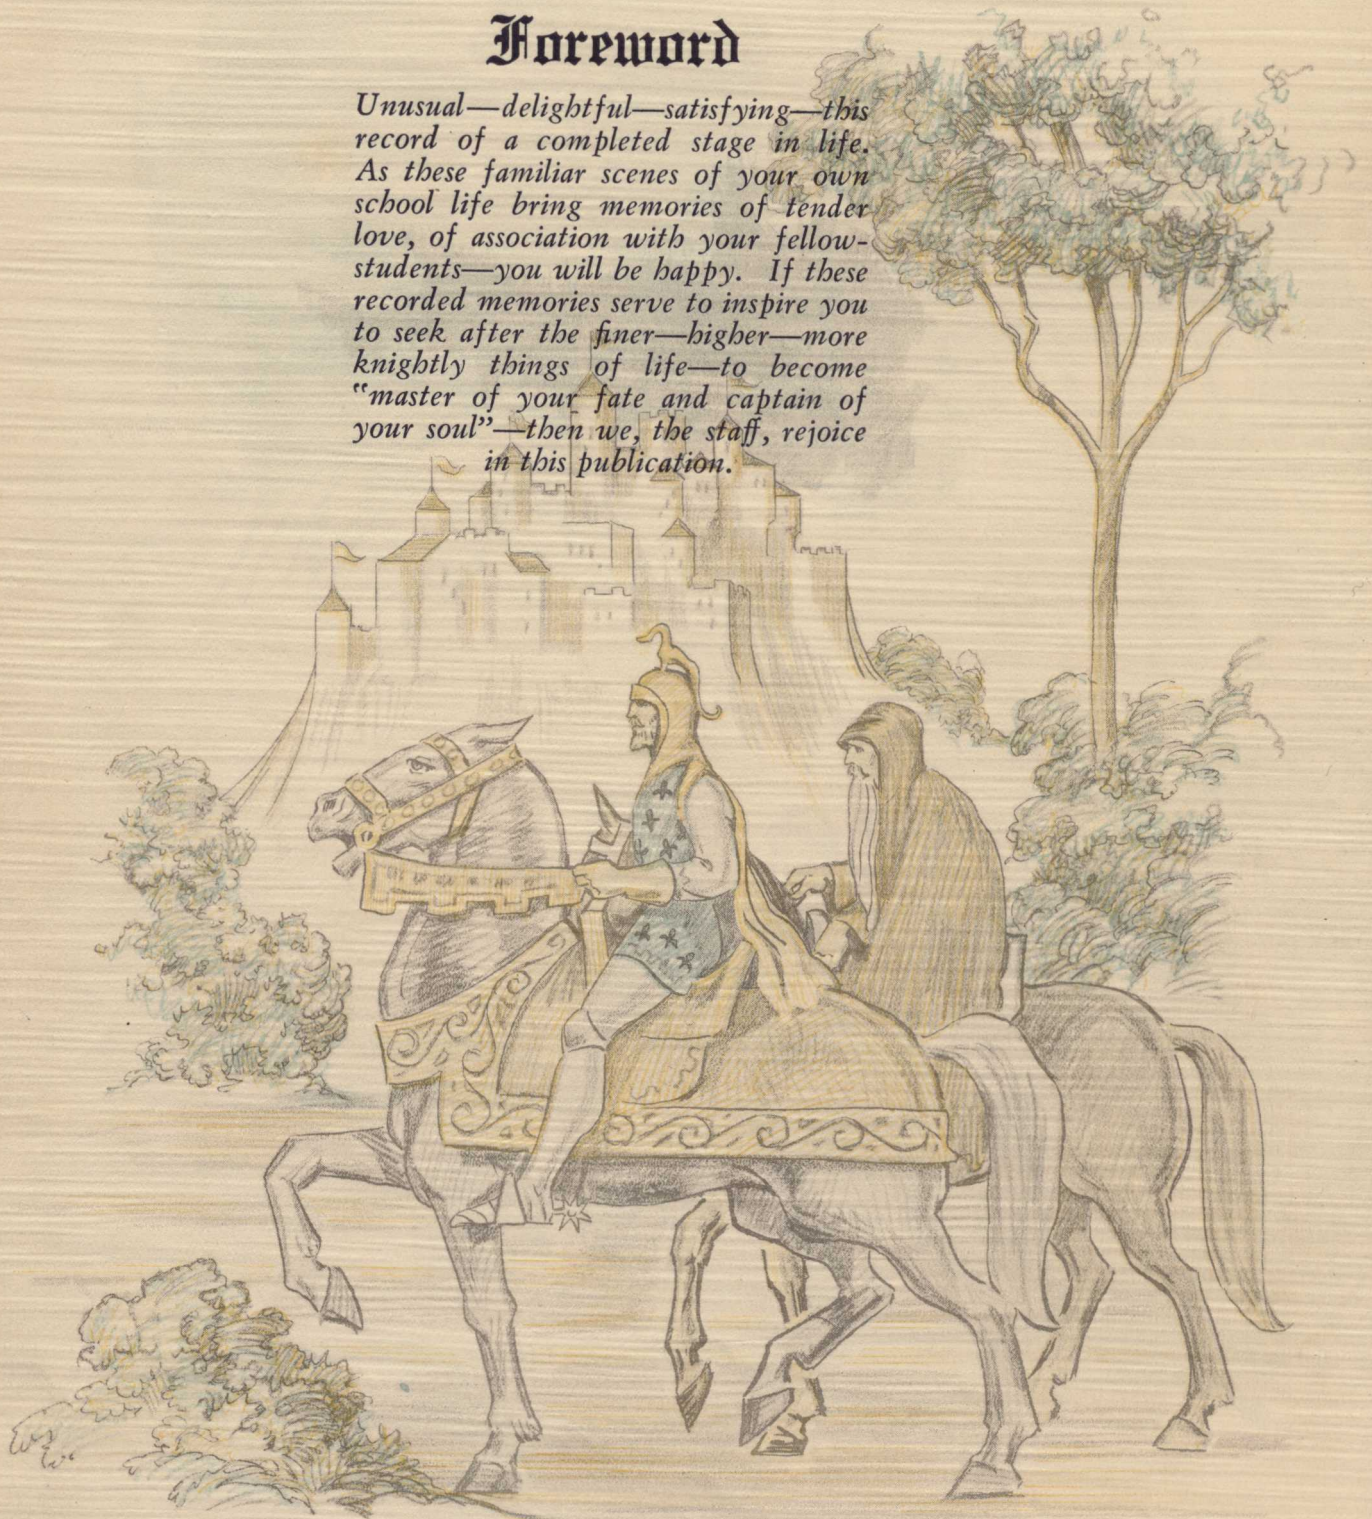 Foreword
Unusual—delightful—satisfying—this
record of a completed stage in life.
As these familiar scenes of your own
school life bring memories of tender
love, of association with your fellow-
students—you will be happy. If these
recorded memories serve to inspire you
to seek after the finer—higher—more
knightly things of life—to become
"master of your fate and captain of
your soul"—then we, the staff, rejoice
in this publication.